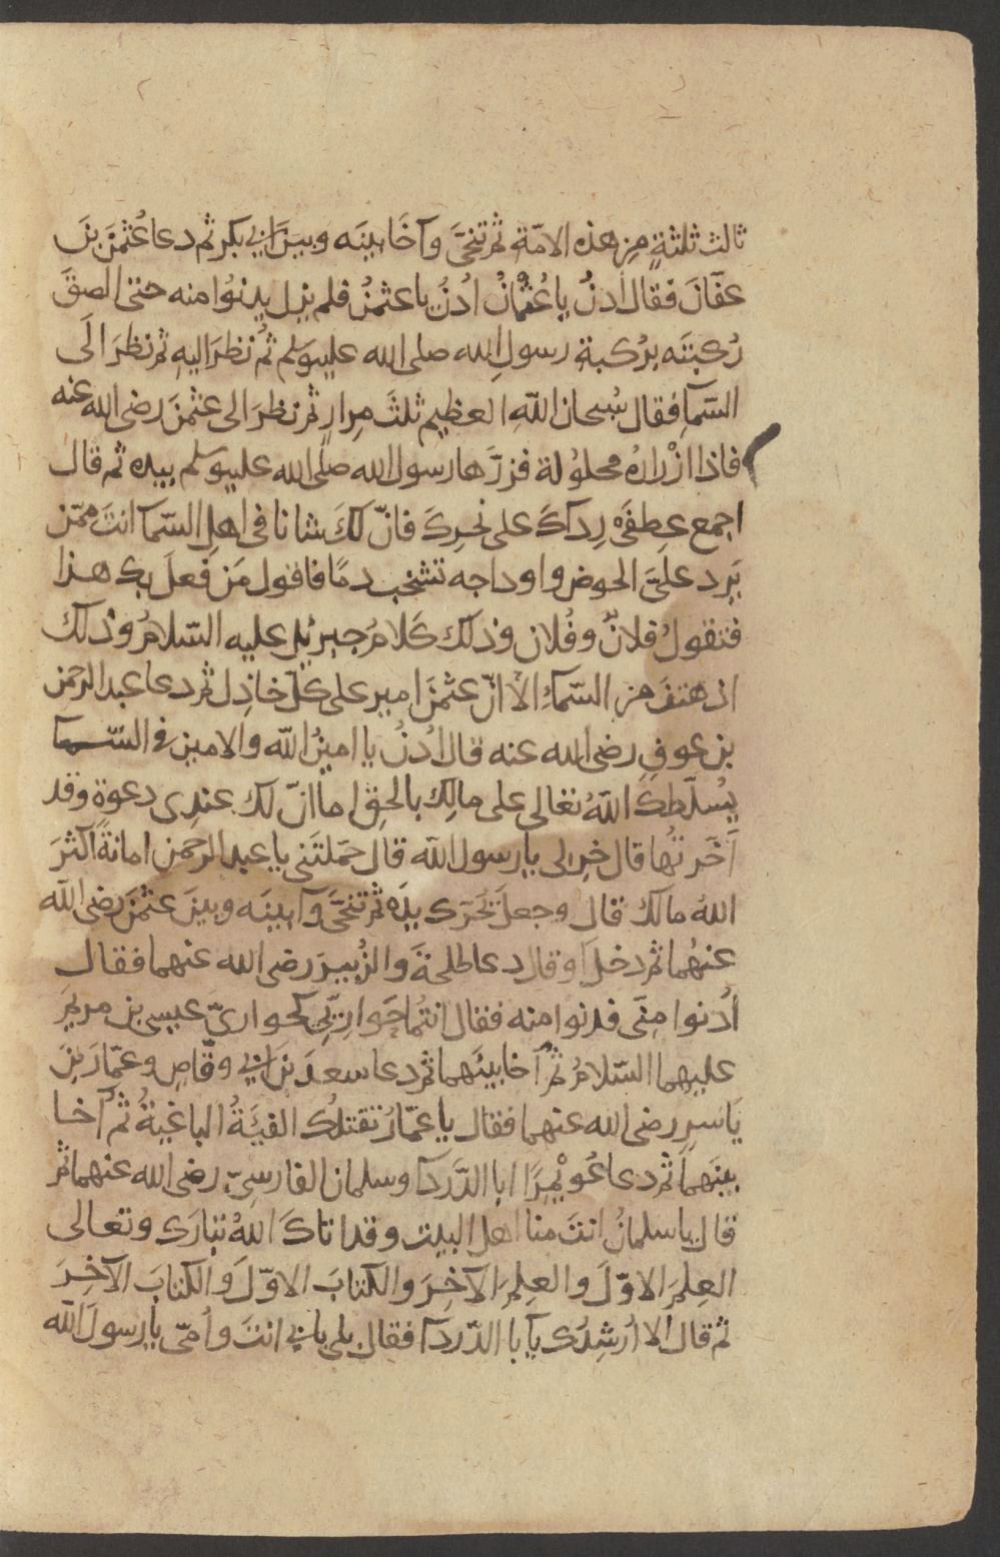 ثالث ثلثةٍ مِن هذه الامّة ثم تنحّى وآخَا بينَه وبينَ ابي بكر ثم دعا عُثمنَ بنَ
عفّانَ فقال ادنُ يا عُثمانُ ادُنُ يا عثمنُ فلم يزل يدنوُا منه حتى الصقَ
رُكبتَه برُكبةِ رسولِ الله صلى الله عليه وسلم ثمُ نظرَ اليهِ ثم نظرَ الَى
السّمآءِ فقال سُبحان اللّهِ العظيم ثلثَ مِرارٍ ثم نظرَ الى عثمنَ رضى الله عنه
فاذا ازْرارُه محلوُلة فزرَّها رسول الله صلى الله عليه وسلم بيده ثم قال
اجمع عِطفَى رِدآكَ على نحرِكَ فانّ لكَ شانا فى اهلِ السّمآ انتَ ممّن
يَرِد علىَّ الحوض واوداجه تشخب دمًا فاقول مَن فعلَ بك هذا
فتقولُ فلانٌ وفُلان وذلك كَلامُ جبريُل عليه السّلامُ وذلك
اذ هتفَ من السّمآءِ الا انّ عثمنَ امير على كلّ خاذِل ثم دعا عبد الرحمن
بن عوفٍ رضى الله عنه قال ادُنُ يا امينُ اللّه والامين فى السّمآ
يُسلّطكَ اللّهُ تعالى على مالِك بالحقِّ اما انّ لك عندى دعوةً وقد
اَخّرتُها قال خِر لى يا رسول اللّه قال حَملتَنى يا عبد الرحمن امانةً اكثرَ
اللهُ مالك قال وجعلَ يُحَرّك يدَه ثم تنحَّى وآ بينَه وبينَ عثمنَ رضى اللّه
عنهُما ثم دخلَ او قال دعا طلحةَ والزُبيرَ رضى الله عنهما فقال
اُدنوا مِنّى فدنوا منه فقال انتُما حَوارِيّى كحوارىِّ عيسى بن مريمَ
عليهما السّلامُ ثمُ آخا بينَهما ثم دعا سعدَ بنَ ابي وقّاصٍ وعمّارَ بنَ
يَاسرٍ رضى الله عنهما فقال يا عمّارُ تقتلُك الفِيَةُ الباغيةُ ثمُ آخا
بينَهما ثم دعا عُوَيْمِرًا ابا الدَّردآ وسلمان الفارسىّ رضى الله عنهما ثم
قال يا سلمانُ انتَ منا اهل البيت وقد اتاكَ اللّهُ تبارَك وتعالى
العِلمَ الاوّلَ والعِلمَ الآخِرَ والكتابَ الاوّلَ والكتابَ الآخِرَ
ثم قال الا اُرشِدُك يآ با الدّردآ فقال بلى بابي انتَ واُمّى يا رسولَ اللّه